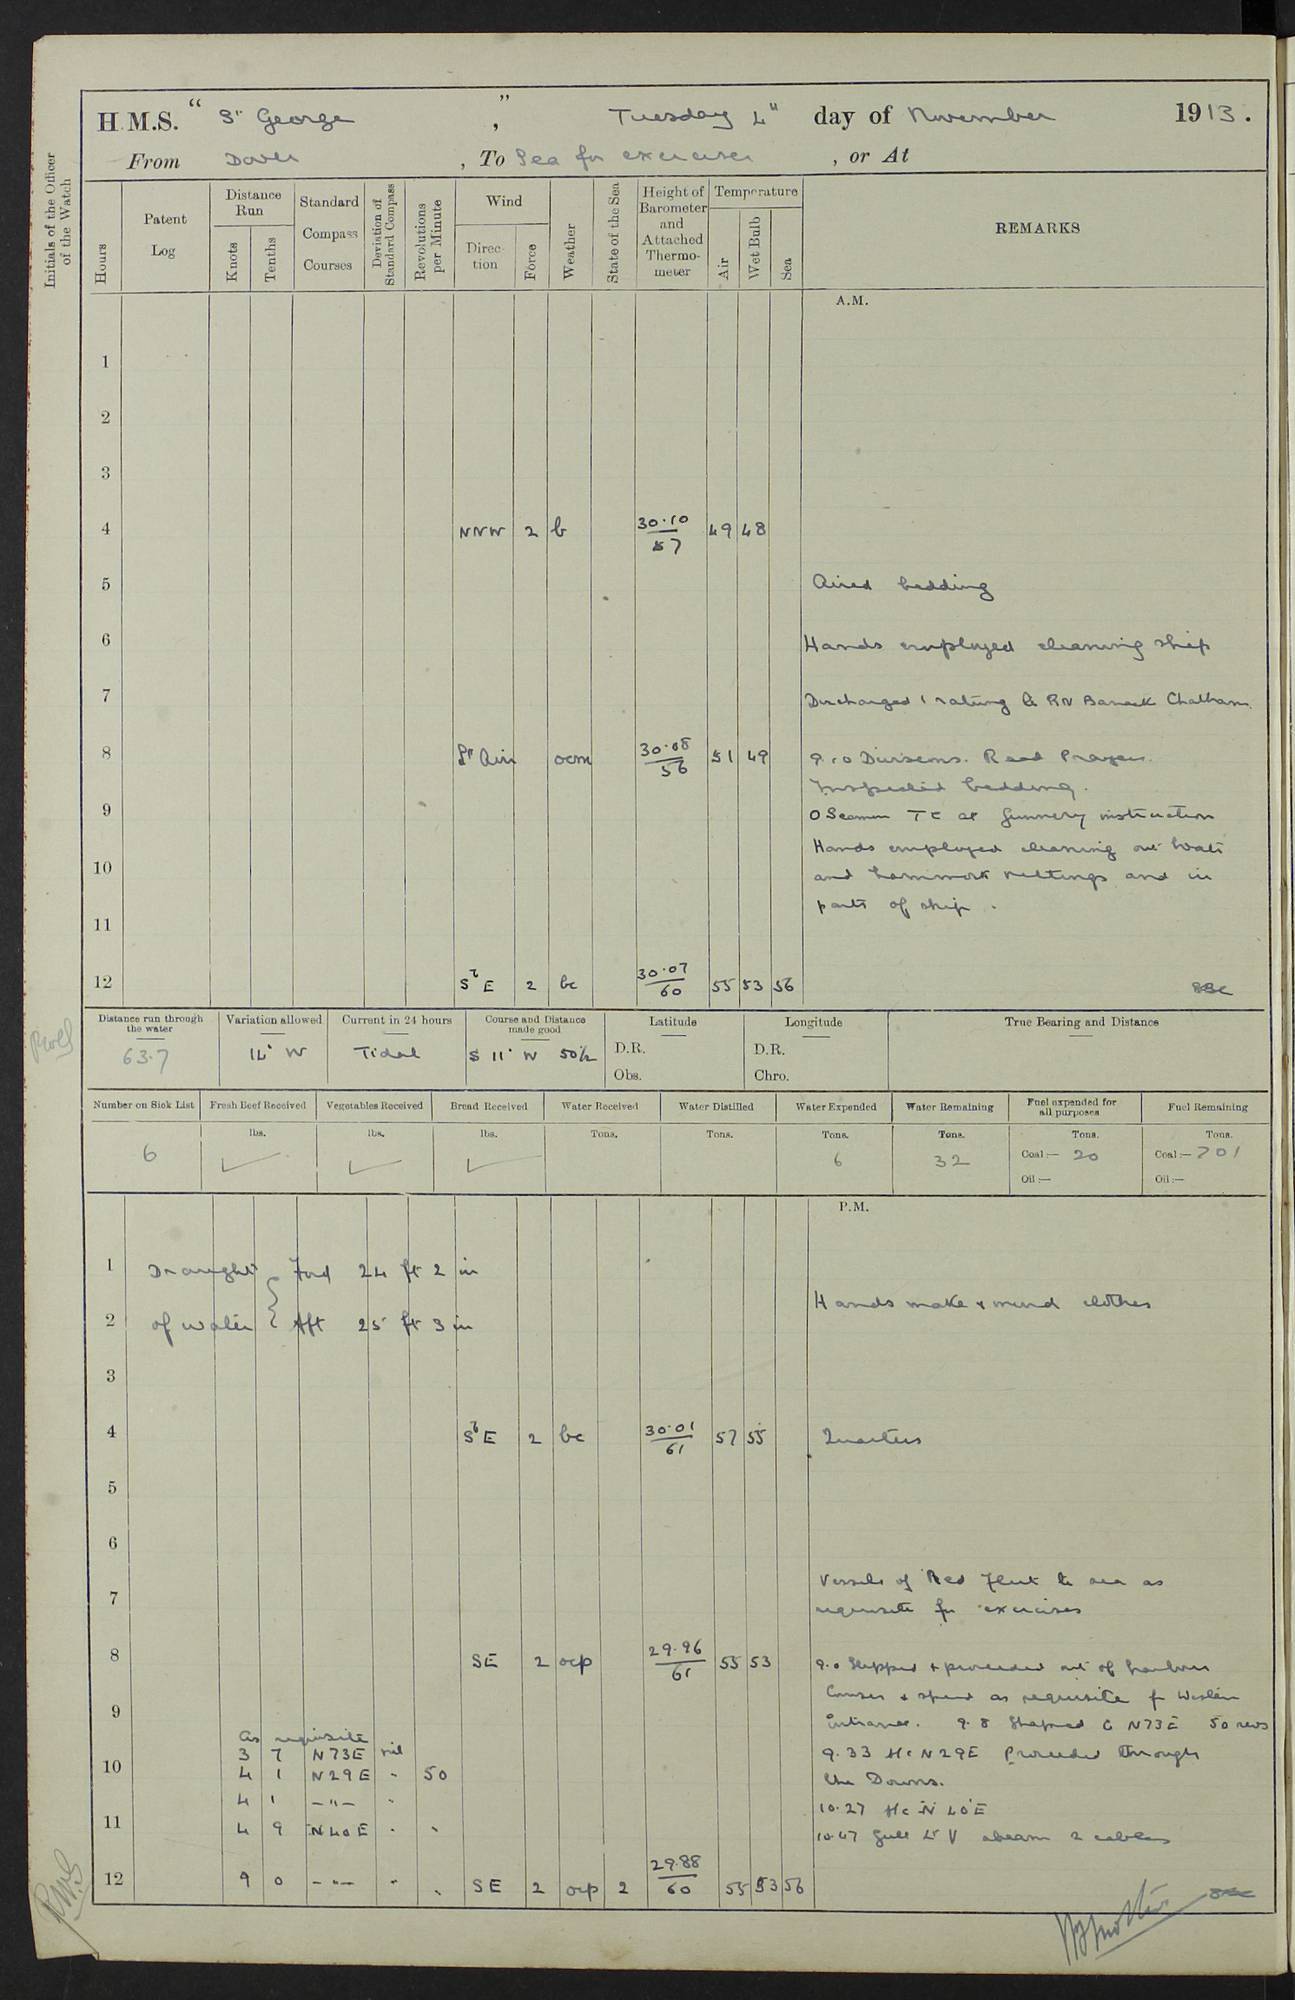 H.M.S. "St George", Tuesday 4th day of November 1913.
From Dover, To Sea for exercises, or At
Initials of the Officer of the Watch
Hours
Patent Log
Distance Run
Knots
Tenths
Standard Compass Courses
Deviation of Standard Compass
Revolutions per Minute
Wind
Direction
Force
Weather
State of the Sea
Height of Barometer and Attached Thermometer
Temperature
Air
Wet Bulb
Sea
REMARKS
A.M.
1
2
3
4 NNW 2 b 30.10 57 49 48
5 Aired bedding
6 Hands employed cleaning ship
7 Discharged 1 rating to RN Barrack Chatham.
8 Lt Air ocm 30.08 56 51 49 9.10 Divisions. Read Prayers.
Inspected bedding.
9 O Seamen TC at Gunnery instruction
Hands employed cleaning out boats
10 and hammock nettings and in
parts of ship.
11
12 S b E 2 bc 30.07 60 55 53 56
Distance run through the water 63.7
Variation allowed 14° W
Current in 24 hours Tidal
Course and Distance made good S 11° W 50½
Latitude
D.R.
Obs.
Longitude
D.R.
Chro.
True Bearing and Distance
Number on Sick List 6
Fresh Beef Received lbs. ✓
Vegetables Received lbs. ✓
Bread Received lbs. ✓
Water Received Tons.
Water Distilled Tons.
Water Expended Tons. 6
Water Remaining Tons. 32
Fuel expended for all purposes Tons. Coal:— 20 Oil:—
Fuel Remaining Tons. Coal:— 701 Oil:—
P.M.
1 Draught Ford 24 ft 2 in
Hands make & mend clothes
2 of water Aft 25 ft 3 in
3
4 S b E 2 bc 30.01 61 57 55 Quarters
5
6
Vessels of Red Fleet to sea as
7 requisite for exercises
8 SE 2 ocp 29.96 61 55 53 9.0 Slipped & proceeded out of harbour
Courses & speed as requisite for Western
9 Entrance. 9.8 Shaped C N73E 50 revs
as requisite
3 7 N73E nil 9.33 A/c N29E Proceeded through
10 4 1 N29E " 50 the Downs.
4 1 -"- " 10.27 A/c N 40 E
11 4 9 N40E " " 10.47 Gull Lt V abeam 2 cables
12 9 0 -"- " " SE 2 ocp 2 29.88 60 55 53 56